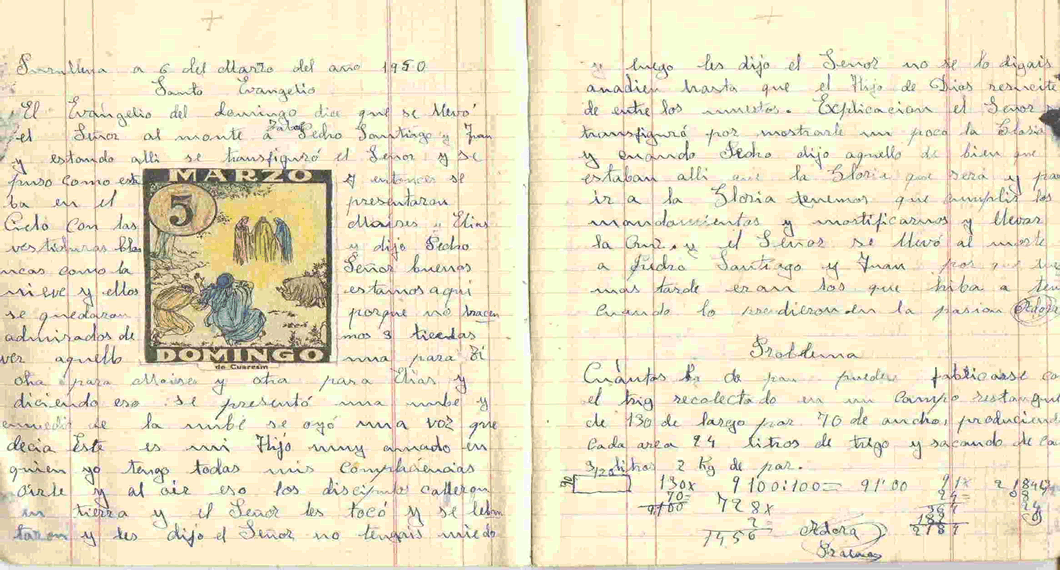 a 6 del Marzo del año 1950
Santo Evangelio
El Evángelio del domingo dice que se llevó
el Señor al monte a Tabor Pedro Santiago y Juan
y estando alli se transfiguró el Señor y se
puso como est
ba en el
Cielo con las
vestiduras bla
ncas como la
nieve y ellos
se quedaron
admirados de
ver aquello
MARZO
5
DOMINGO
de Cuaresm
y entonces se
presentaron
Moises y Elias
y dijo Pedro
Señor buenos
estamos aqui
porque no hacem
mos 3 tiendas
una para Ti
otra para Moises y otra para Elias y
diciendo eso se presentó una nube y
enmedio de la nube se oyó una voz que
decia Este es mi Hijo muy amado en
quien yo tengo todas mis complaciencias
oirle y al oir eso los discipulos calleron
en tierra y el Señor les tocó y se leban
taron y les dijo el Señor no tengais miedo
y luego les dijo el Señor no se lo digais
anadien hasta que el Hijo de Dios resucite
de entre los muertos. Explicacion el Señor
transfiguró por mostrarle un poco la Gloria
y cuando Pedro dijo aquello de bien que
estaban alli que la Gloria que será y par
ir a la Gloria tenemos que cumplir los
mandamientos y mortificarnos y llevar
la Cruz y el Señor se llevó al monte
a Pedro Santiago y Juan por que
mas tarde eran los que hiba a ten
cuando lo prendieron en la pasion Adora
Problema
Cuántos kg de pan pueden fabricarse co
el trig recolectado en un campo restangul
de 130 de largo por 70 de ancho, producien
cada area 24 litros de trigo y sacando de ca
3 litros 2 Kg de pan.
130x 9100:100= 91'00 91x
70= 728x 24=
9100 2 364
1456 182
Adora 2184